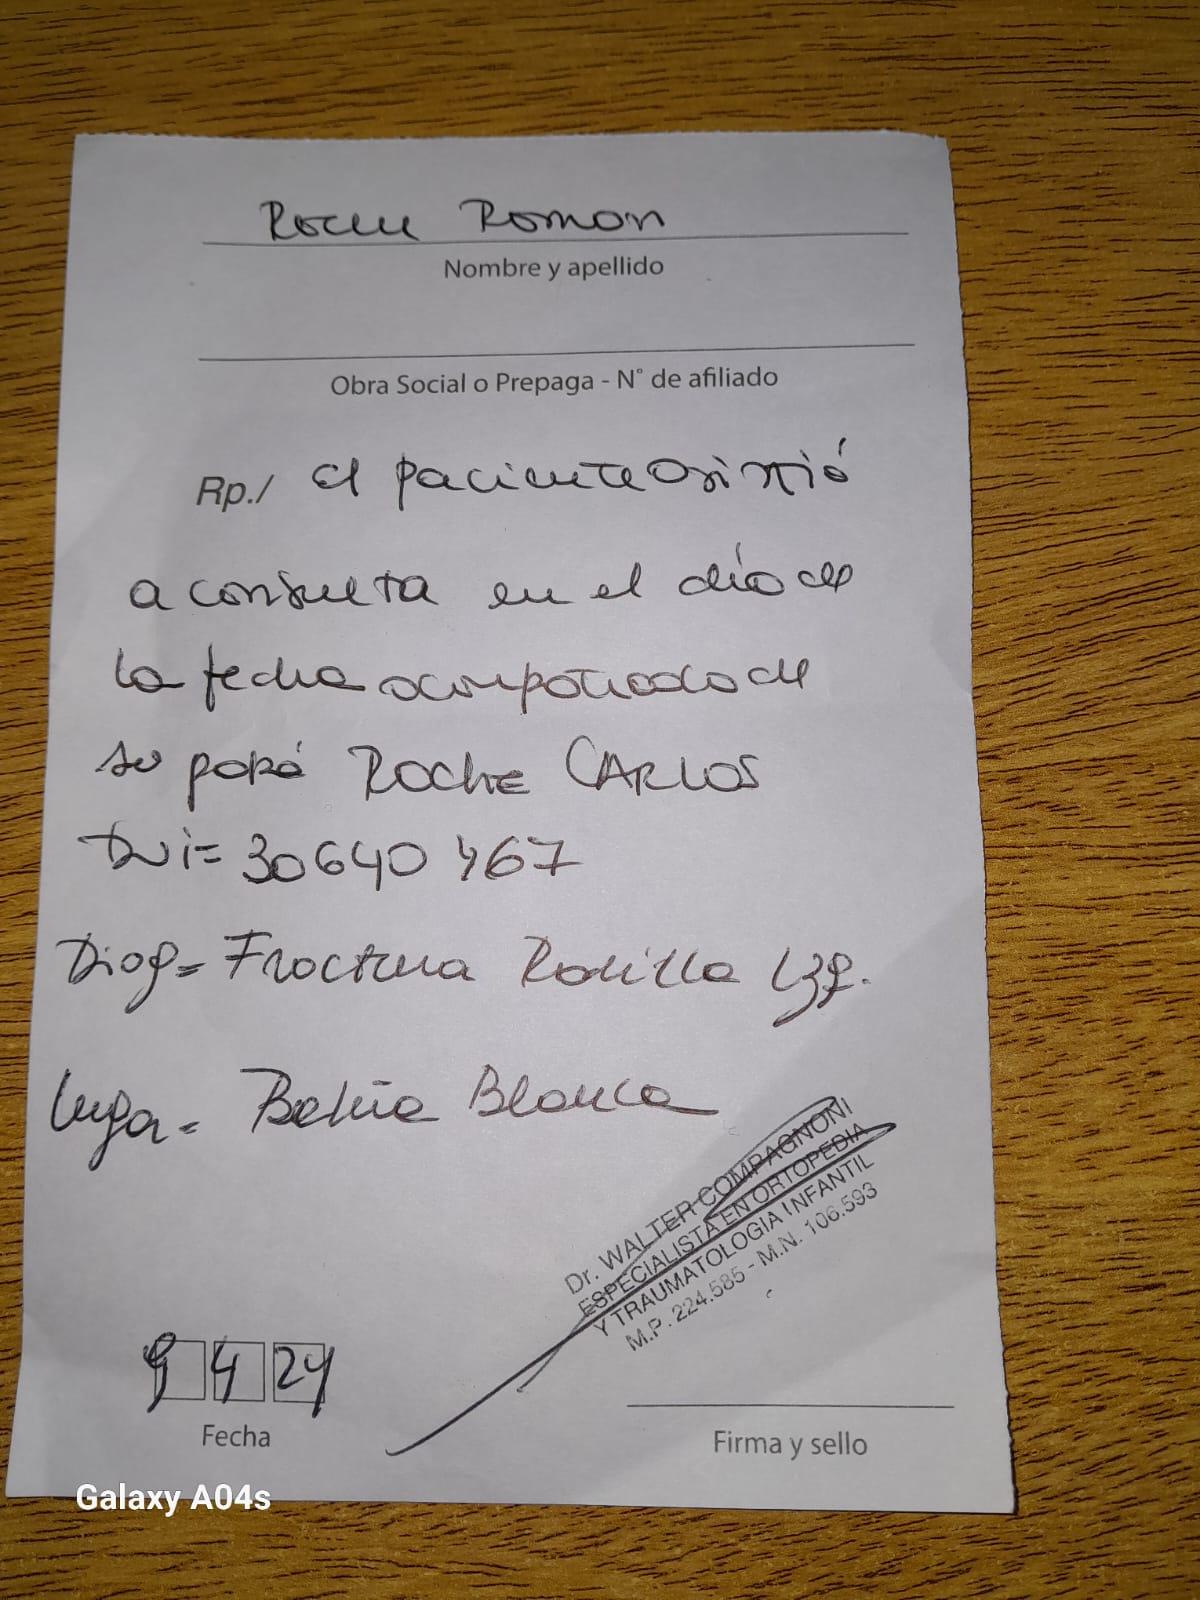 Roche Roman
Nombre y apellido
Obra Social o Prepaga - N° de afiliado
Rp./ El paciente asistió
a consulta en el día de
la fecha acompañado de
su papá Roche CARLOS
Dni= 30640467
Diag= Fractura Rodilla Izq.
Lugar= Bahía Blanca
Dr. WALTER COMPAGNONI
ESPECIALISTA EN ORTOPEDIA
Y TRAUMATOLOGIA INFANTIL
M.P. 224.585 - M.N. 106.593
9 4 24
Fecha
Firma y sello
Galaxy A04s